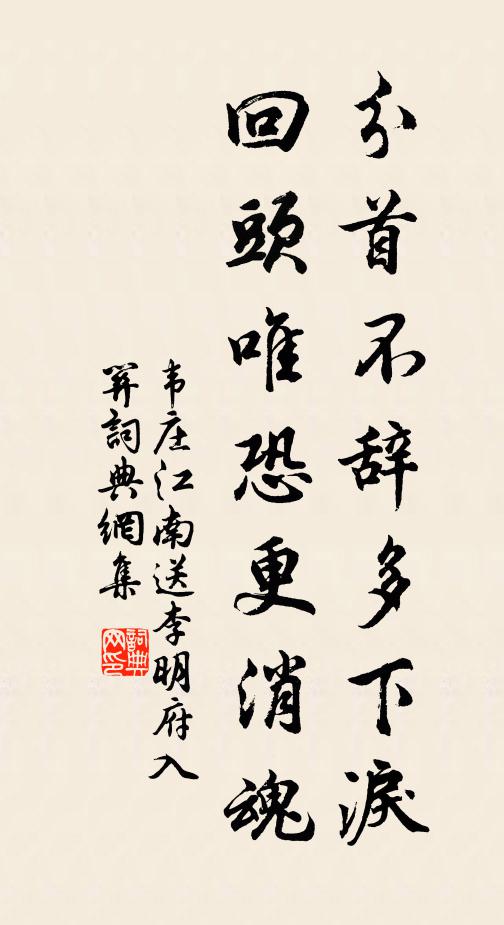 分首不辞多下淚
回頭唯恐更消魂
韦庄江南送李明府入
関詞典網集
詞典网印